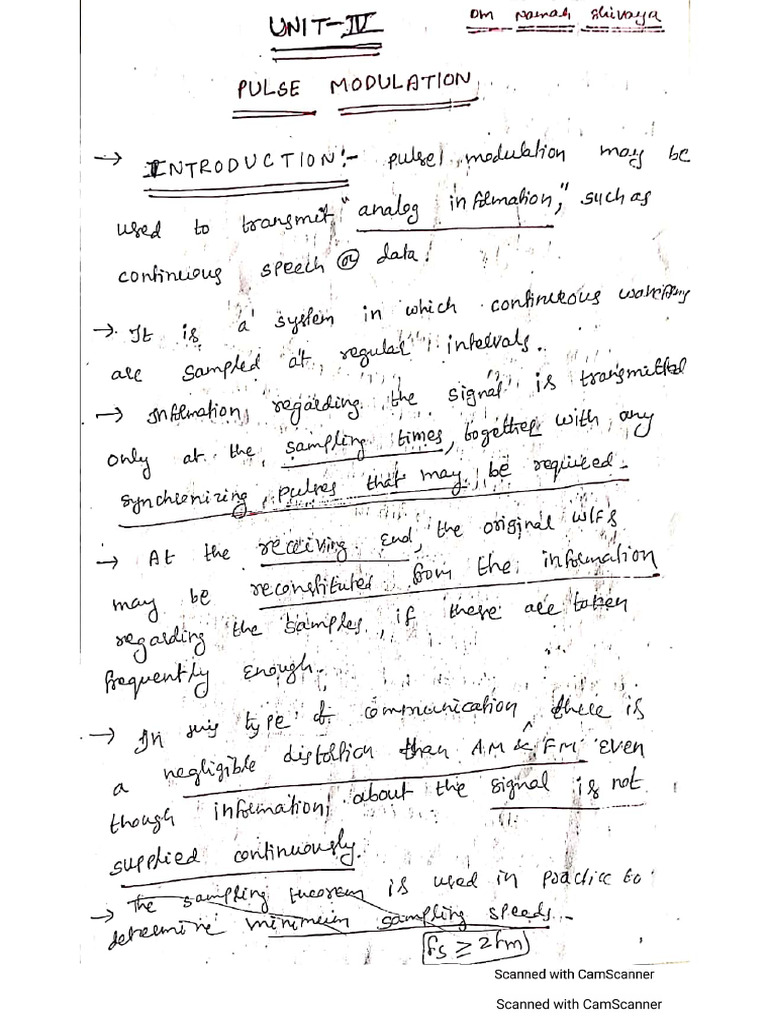 UNIT-IV
Om Namah Shivaya
PULSE MODULATION
→ INTRODUCTION:- pulse modulation may be
used to transmit "analog information," such as
continuous speech or data.
→ It is a system in which continuous waveforms
are sampled at regular intervals.
→ Information regarding the signal is transmitted
only at the sampling times, together with any
synchronizing pulses that may be required.
→ At the receiving end, the original w/f's
may be reconstituted from the information
regarding the samples, if these are taken
frequently enough.
→ In this type of communication there is
a negligible distortion than AM & FM even
though information about the signal is not
supplied continuously.
→ The sampling theorem is used in practice to
determine minimum sampling speeds.
fs ≥ 2fm
Scanned with CamScanner
Scanned with CamScanner